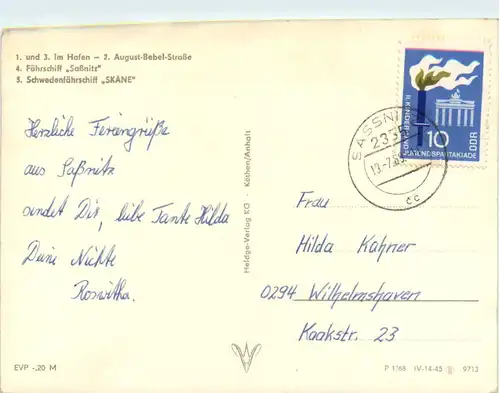 1. und 3. Im Hafen – 2. August-Bebel-Straße
4. Fährschiff „Saßnitz"
5. Schwedenfährschiff „SKÅNE"
Herzliche Feriengrüße
aus Saßnitz
sendet Dir, liebe Tante Hilda
Deine Nichte
Roswitha.
EVP -.20 M
Heldge-Verlag KG · Köthen/Anhalt
II. KINDER- UND
JUGENDSPARTAKIADE
10
DDR
SASSNI
2355
cc
Frau
Hilda Kahner
0294 Wilhelmshaven
Kaakstr. 23
P 1/68 IV-14-45 9713